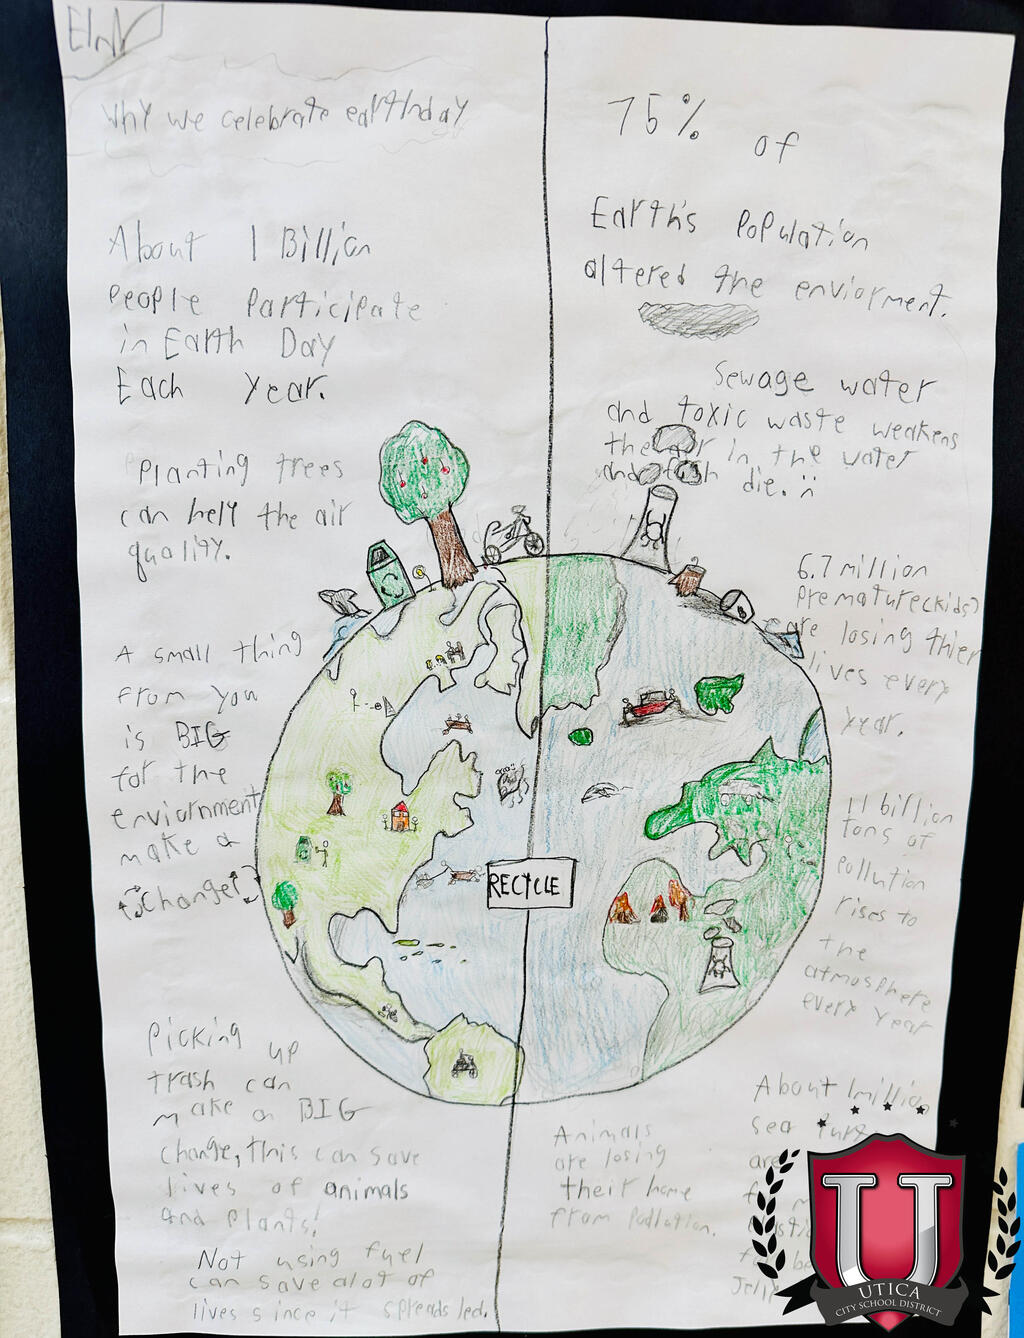 Why we celebrate earthday
About 1 Billion
people participate
in Earth Day
Each year.
Planting trees
can help the air
quality.
A small thing
from you
is BIG
for the
enviornment
make a
change!
Picking up
trash can
make a BIG
change, this can save
lives of animals
and plants!
Not using fuel
can save alot of
lives since it spreads led.
75% of
Earth's population
altered the enviorment.
Sewage water
and toxic waste weakens
the air in the water
and fish die. :(
6.7 million
premature(kids)
are losing thier
lives every
year.
11 billion
tons of
pollution
rises to
the
atmosphere
every year
About 1 million
sea
are
Animals
are losing
their home
from pollution.
RECYCLE
U
UTICA
CITY SCHOOL DISTRICT